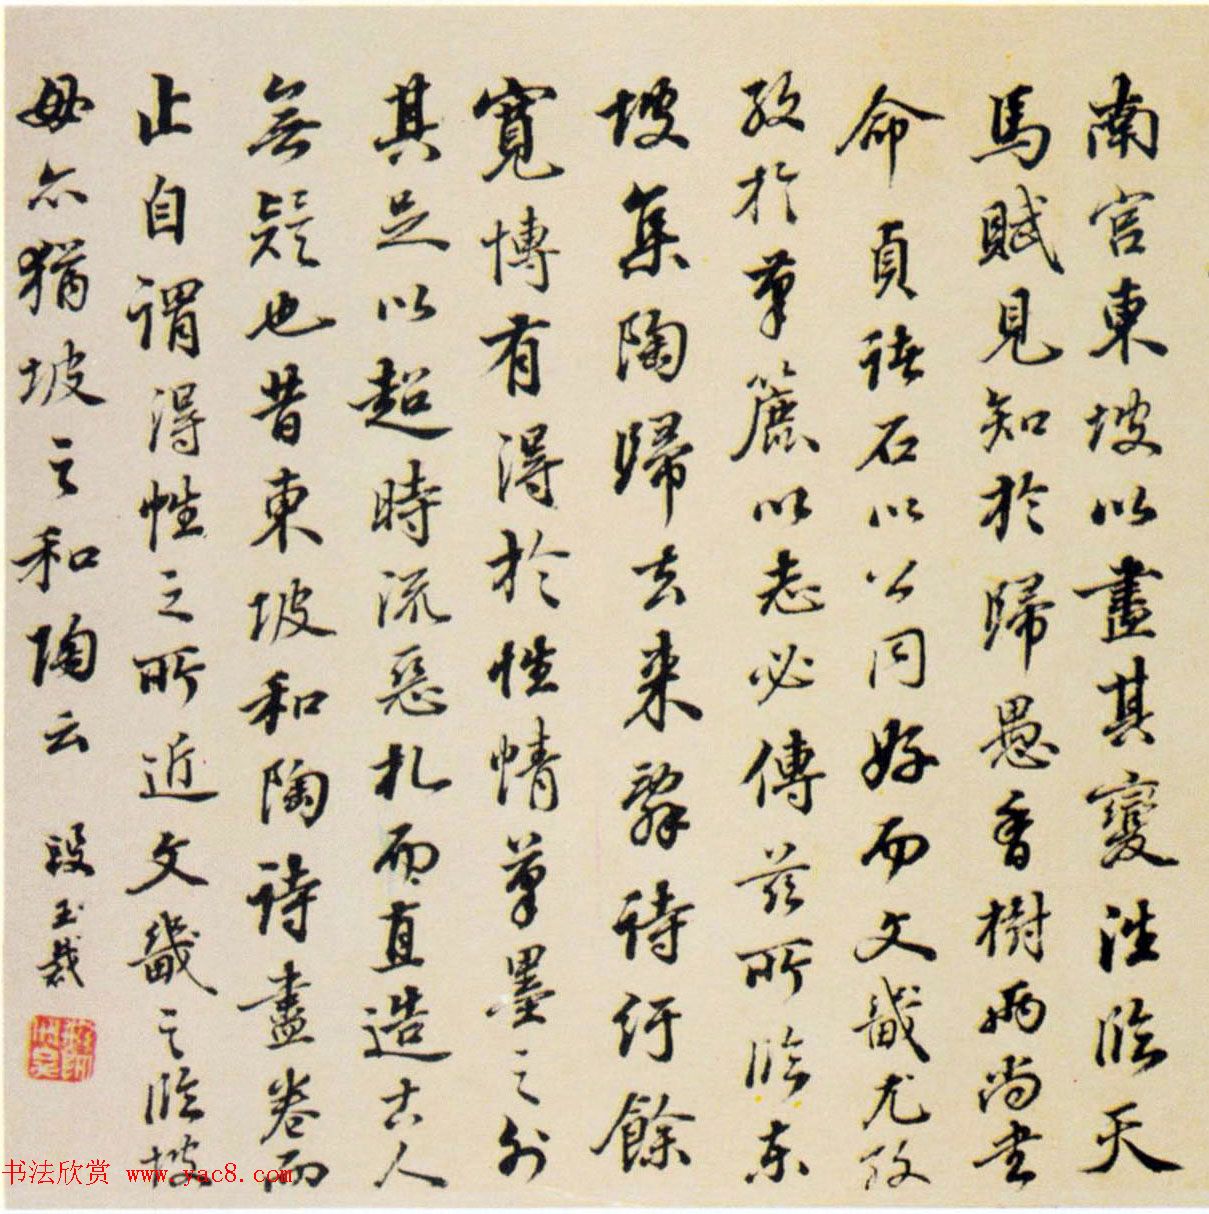 南宫東坡以盡其變法臨天
馬賦見知於歸愚香樹兩尚書
命貢諸石以公同好而文畿尤孜
孜於筆簏以志必傳茲所臨東
坡集陶歸去来辭詩紆餘
寬博有得於性情筆墨之外
其足以超時流惡札而直造古人
無疑也昔東坡和陶詩盡卷而
止自謂得性之所近文畿之臨坡
毋亦猶坡之和陶云
段玉裁
书法欣赏 www.yac8.com